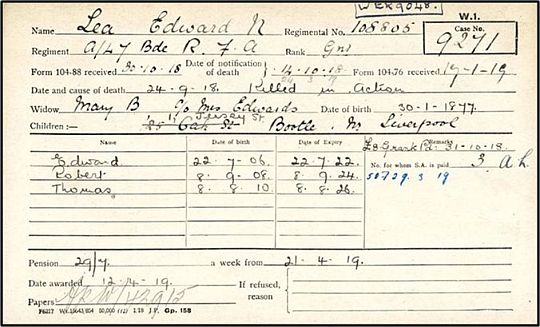 WER9048.
W.1.
Name Lea Edward N Regimental No. 108805
Case No.
9271
Regiment A/47 Bde R. F. A Rank Gnr
Form 104-88 received 30-10-18 Date of notification of death 14-10-18 Form 104-76 received 17-1-19
Date and cause of death 24-9-18. Killed in Action
Widow Mary B c/o Mrs Edwards Date of birth 30-1-1877.
11 Jersey St.
Children:— 25 Oak St Bootle, Nr Liverpool
Name Date of birth Date of Expiry Remarks
£8 Grant Pd. 31-10-18.
No. for whom S.A. is paid 3.
Edward 22. 7. 06. 22. 7. 22.
Robert 8. 9. 08. 8. 9. 24.
Thomas 8. 8. 10. 8. 8. 26.
Pension 29/7 a week from 21. 4. 19.
Date awarded 12-4-19.
If refused, reason
Papers
Gp. 158